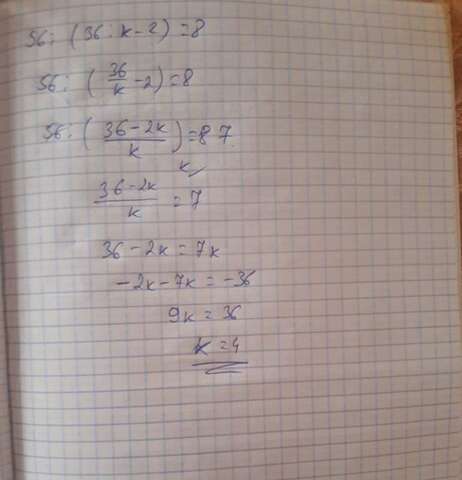 56 : (36 : k - 2) = 8
56 : (36/k - 2) = 8
56 : ((36 - 2k)/k) = 8 7
k
(36 - 2k)/k = 7
36 - 2k = 7k
-2k - 7k = -36
9k = 36
k = 4